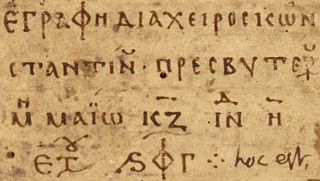 ΕΓΡΑΦΗ ΔΙΑ ΧΕΙΡΟΣ ΚΩΝ
ΣΤΑΝΤΙΝ · ΠΡΕΣΒΥΤΕΡ
Μ ΜΑΪΩ ΚΖ ΙΝ Η
· ΕΤ ϚΦΓ ∴ hoc est.